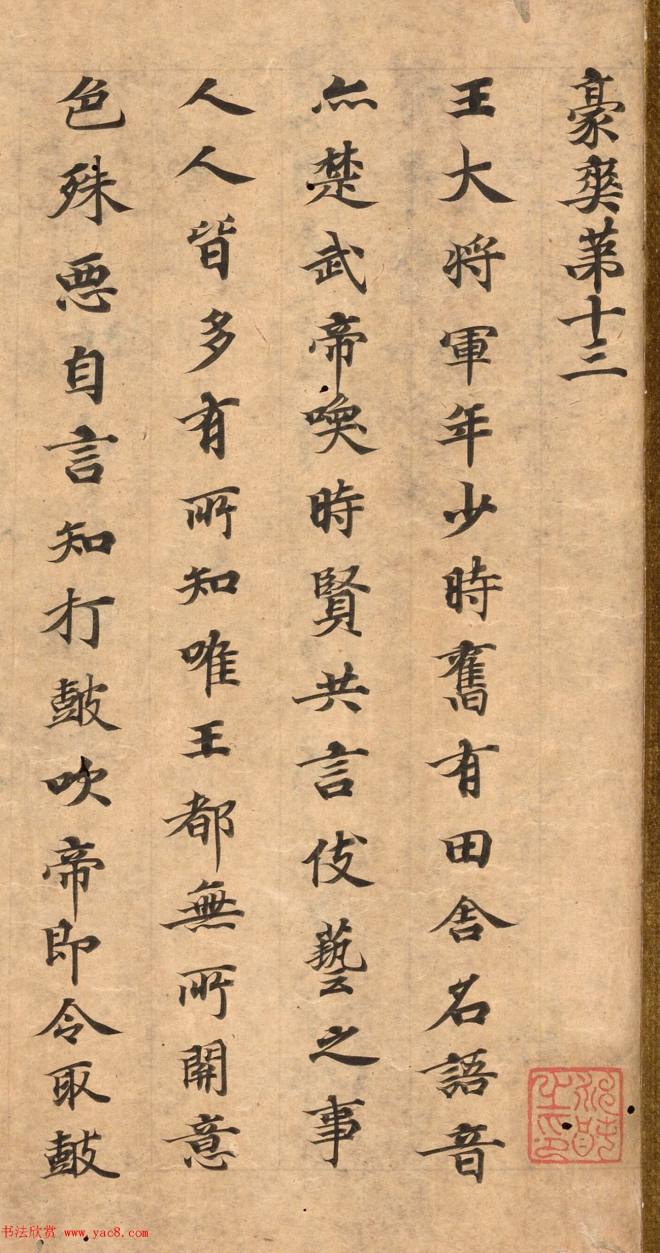 豪爽第十三
王大将軍年少時舊有田舎名語音
亦楚武帝喚時賢共言伎藝之事
人人皆多有所知唯王都無所開意
色殊惡自言知打皷吹帝即令取皷
书法欣赏 www.yac8.com